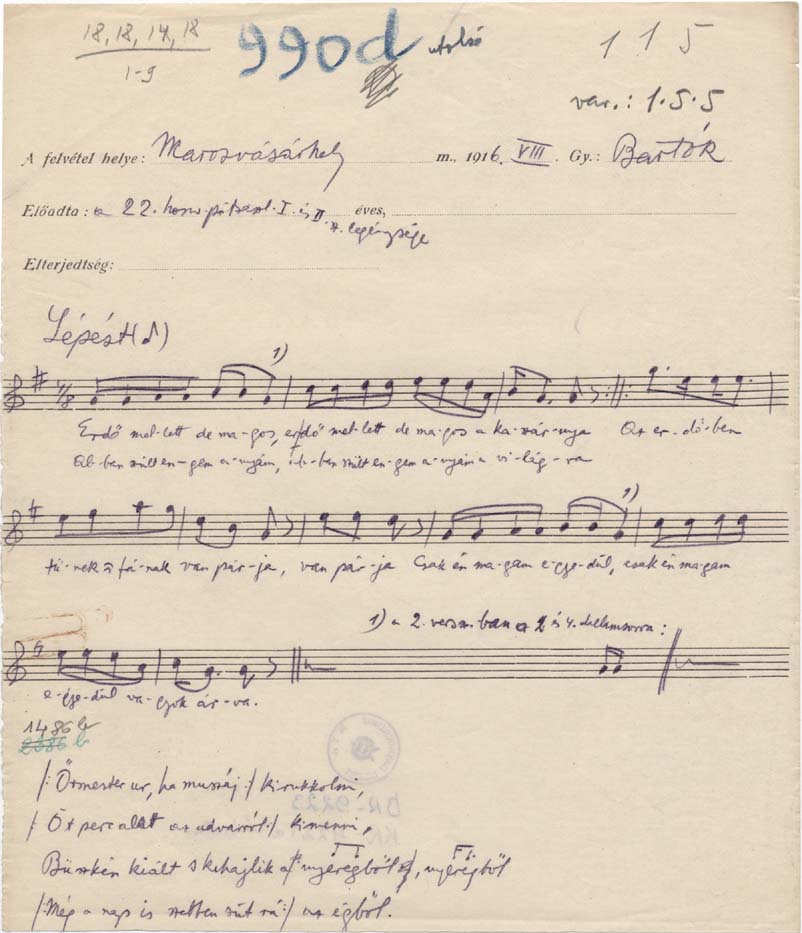 18, 18, 14, 18
1-9
990d utolsó
115
var.: 1.5.5
A felvétel helye: Marosvásárhely m., 1916. VIII. Gy.: Bartók
Előadta: a 22. honv. I. és II. éves,
legénysége
Elterjedtség:
Lépést
1)
Erdő mel-lett de ma-gos, erdő mel-lett de ma-gos a ka-szár-nya Az er-dő-ben
Ab-ban szült en-gem a-nyám, ab-ban szült en-gem a-nyám a vi-lág-ra
1)
fá-nak van pár-ja, van pár-ja Csak én ma-gam e-gye-dül, csak én ma-gam
1) a 2. versz.ban a 2 és 4. dallamsorra:
e-gye-dül va-gyok ár-va.
1486 b
2386 b
/: Őrmester ur, ha muszáj :/ kirukkolni,
/: Öt perc alatt az udvarról :/ kimenni,
Büszkén kiált s kihajlik a nyeregből, nyeregből
/: Még a nap is szebben süt rá :/ az égből.